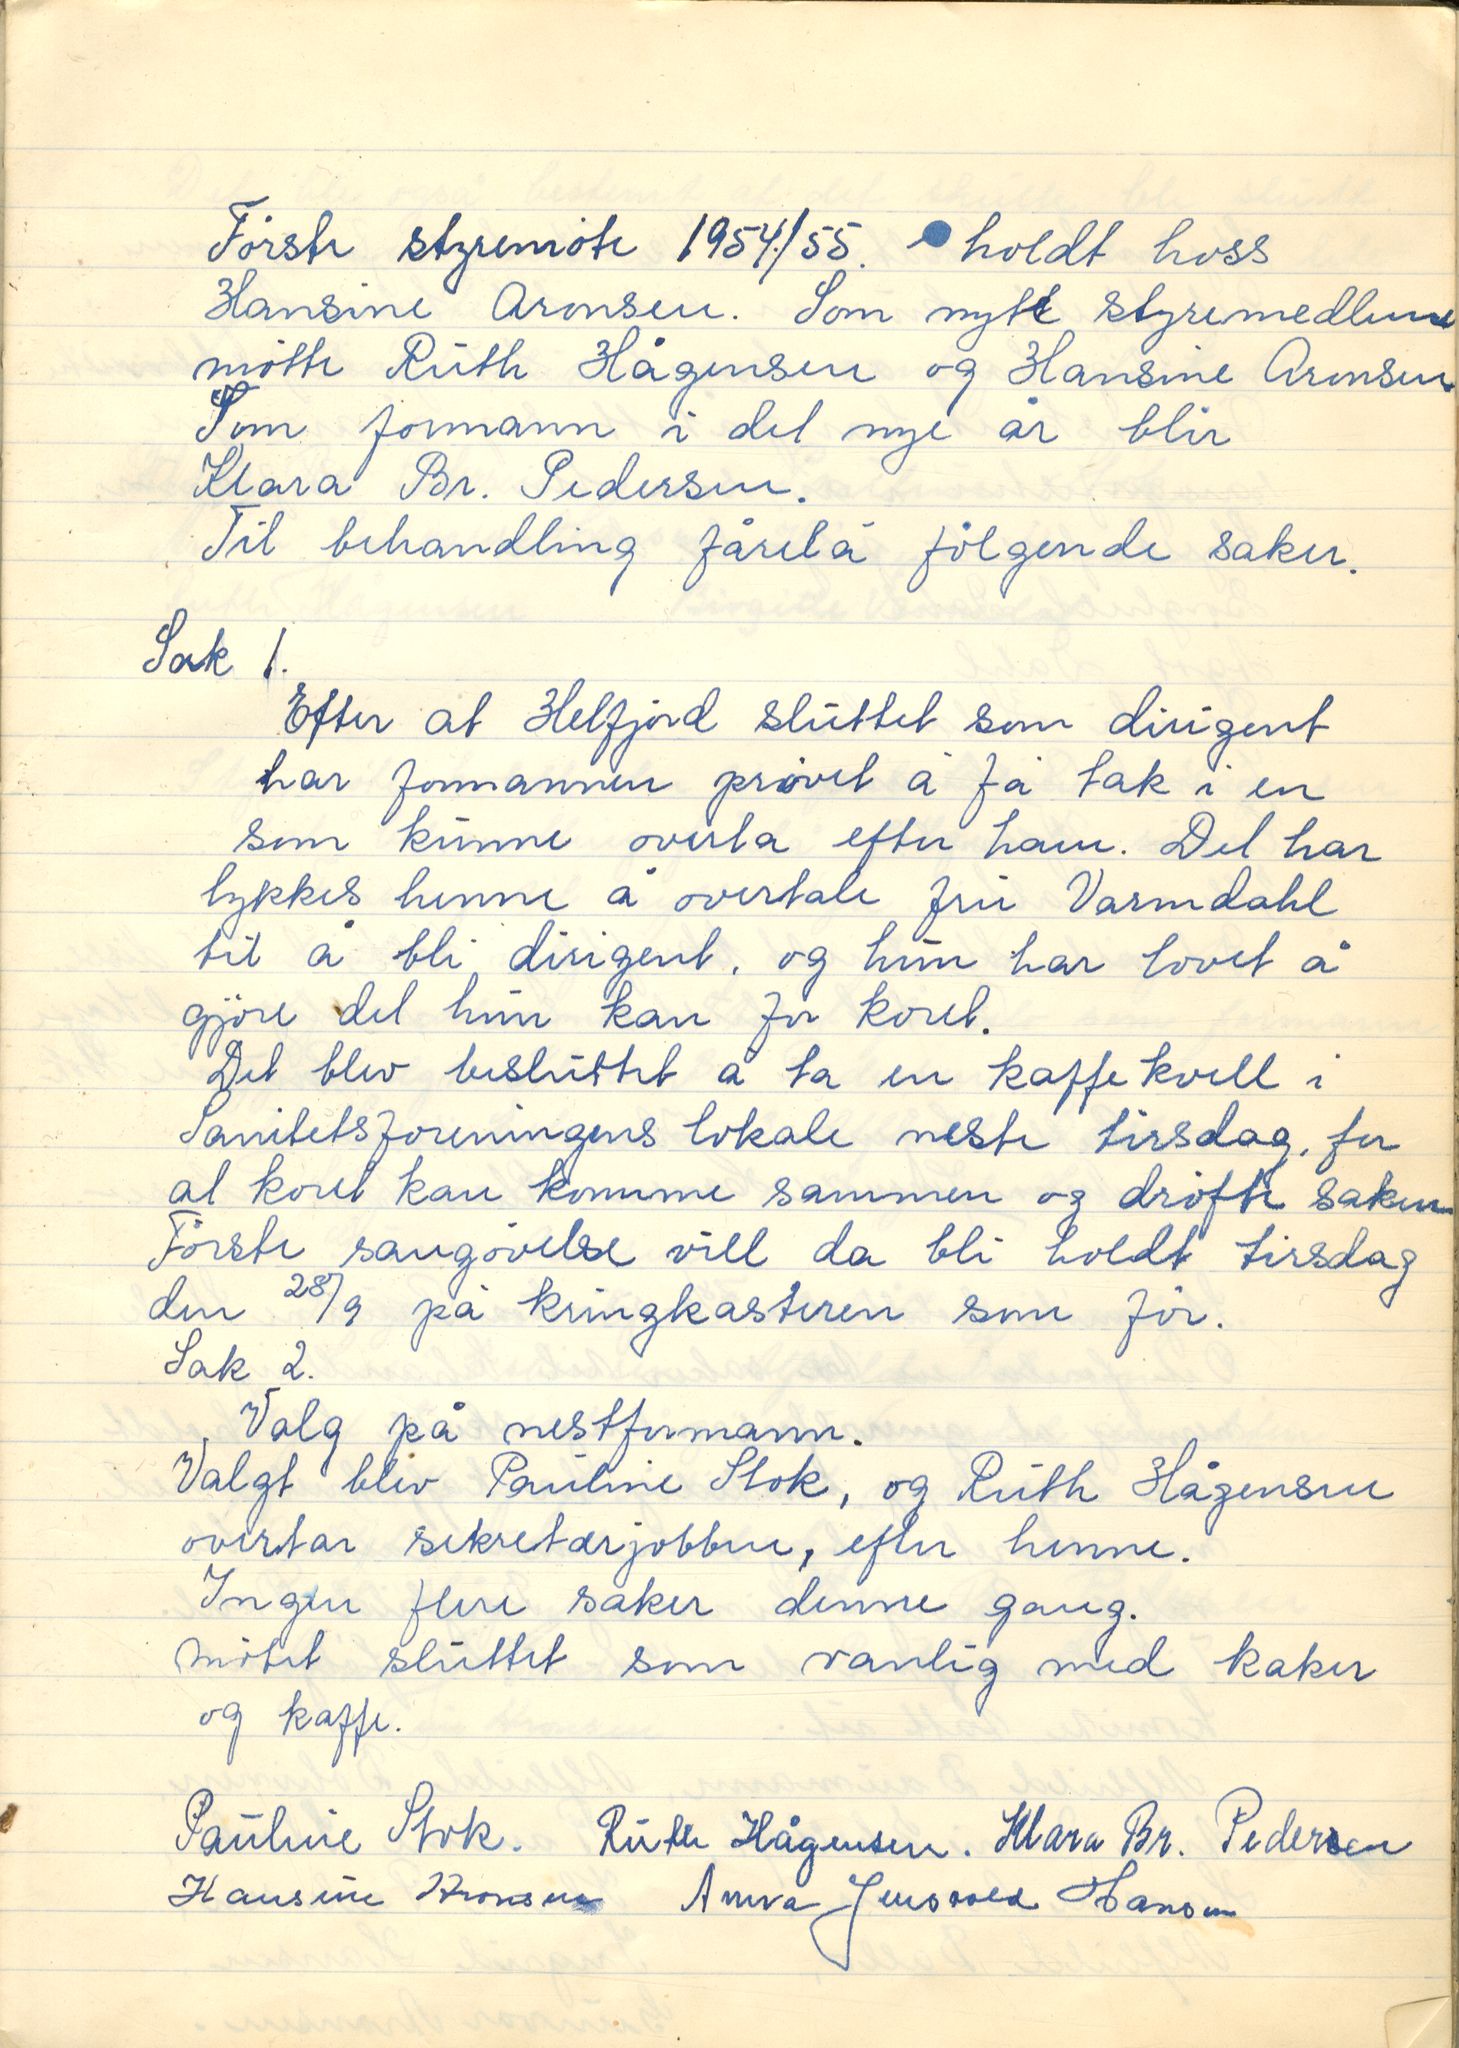 Første styremøte 1954/55. holdt hoss
Hansine Aronsen. Som nytt styremedlem
møtte Ruth Hågensen og Hansine Aronsen
Som formann i det nye år blir
Klara Br. Pedersen.
Til behandling fårelå følgende saker.
Sak 1.
Efter at Helfjord sluttet som dirigent
har formannen prøvet å få tak i en
som kunne overta efter ham. Det har
lykkes henne å overtale fru Varmdahl
til å bli dirigent, og hun har lovet å
gjøre det hun kan for koret.
Det blev besluttet å ta en kaffekvell i
Sanitetsforeningens lokale neste tirsdag, for
at koret kan komme sammen og drøfte saken
Første sangøvelse vill da bli holdt tirsdag
den 28/9 på kringkasteren som før.
Sak 2.
Valg på nestformann.
Valgt blev Pauline Stok, og Ruth Hågensen
overtar sekretærjobben, efter henne.
Ingen flere saker denne gang.
møtet sluttet som vanlig med kaker
og kaffe.
Pauline Stok. Ruth Hågensen. Klara Br. Pedersen
Hansine Aronsen Anna Hansen